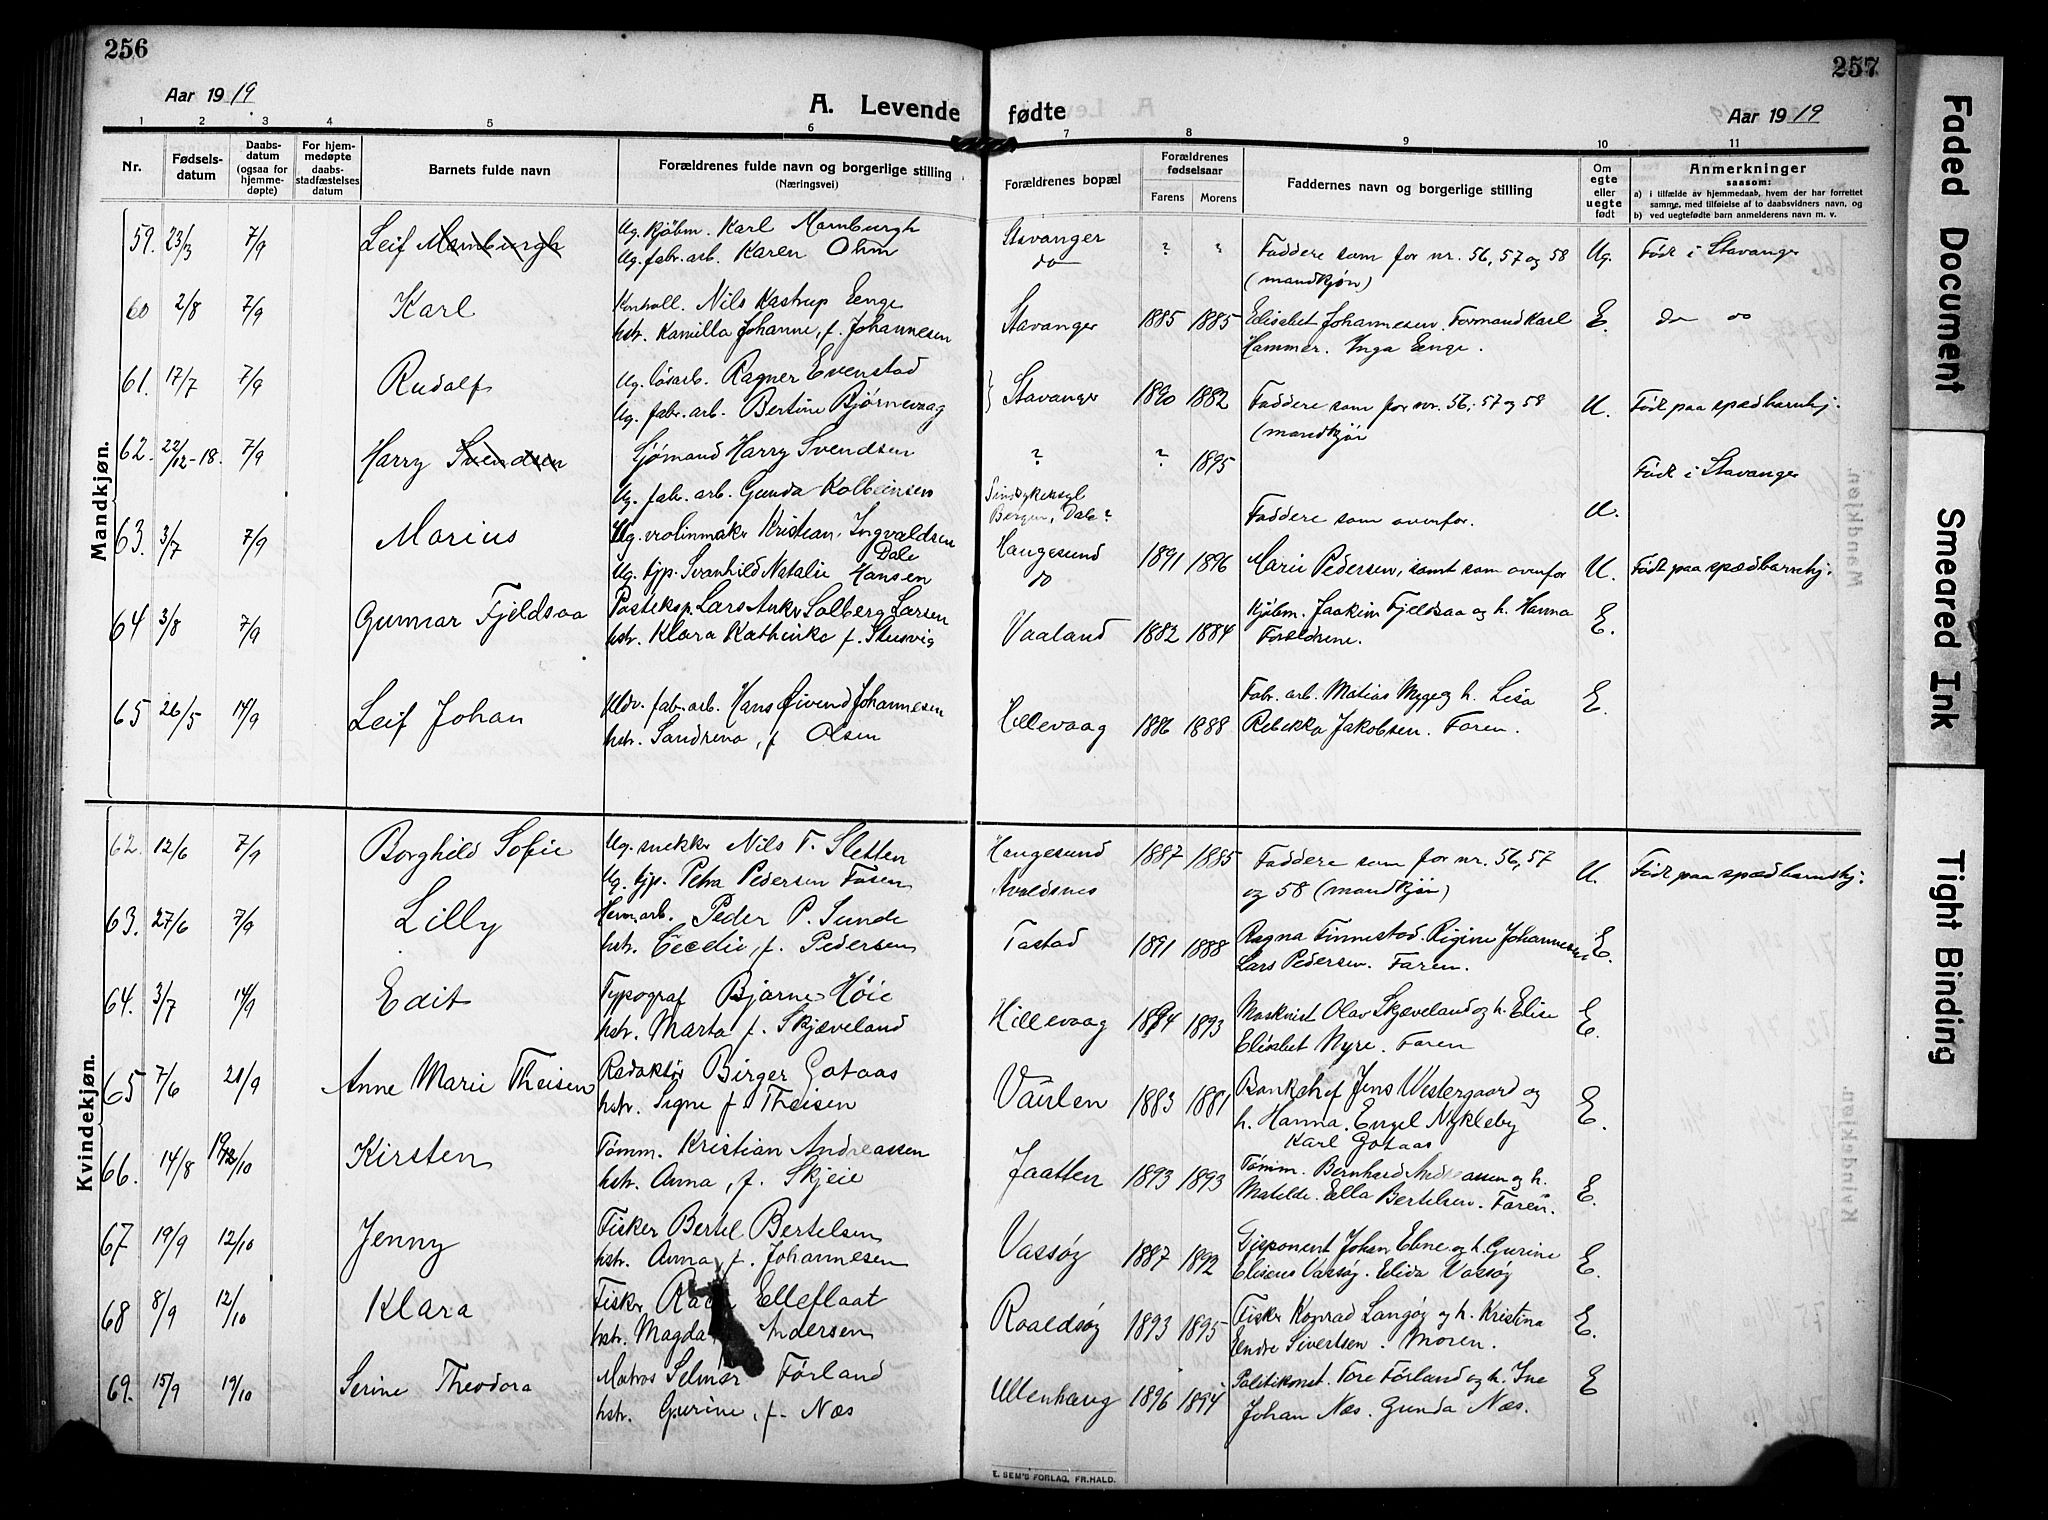 256
Aar 1919
A. Levende
1 2 3 4 5 6
Nr.
Fødsels-
datum
Daabs-
datum
(ogsaa for
hjemme-
døpte)
For hjem-
medøpte
daabs-
stadfæstelses
datum
Barnets fulde navn
Forældrenes fulde navn og borgerlige stilling
(Næringsvei)
257
Aar 1919
fødte
7 8 9 10 11
Forældrenes bopæl
Forældrenes
fødselsaar
Farens Morens
Faddernes navn og borgerlige stilling
Om
egte
eller
uegte
født
Anmerkninger
saasom:
a) i tilfælde av hjemmedaab, hvem der har forrettet
samme, med tilføielse af to daabsvidners navn, og
b) ved uegtefødte barn anmelderens navn m. v.
Mandkjøn.
59. 23/3 7/9 Leif Mamburgh Ug. kjøbm. Karl Mamburgh Stavanger ? " Faddere som for nr. 56, 57 og 58 Ug. Født i Stavanger
Ug. fabr. arb. Karen Ohm do (mandkjøn)
60 2/8 7/9 Karl Kontroll. Nils Kastrup Eenge Stavanger 1885 1885 Elisabet Johannesen. Formand Karl E. do
hstr. Kamilla Johanne, f. Johannesen Hammer. Inga Eenge.
61. 17/7 7/9 Rudolf Ug. løsarb. Ragner Evenstad Stavanger 1890 1882 Faddere som for nr. 56, 57 og 58 U. Født paa spædbarnhj.
Ug. fabr. arb. Bertine Bjørnevaag (mandkjøn
62. 22/12-18. 7/9 Harry Svendsen Sjømand Harry Svendsen ? ? 1895 Født i Stavanger
Ug. fabr. arb. Gunda Kolbeinsen Bergen, Dale? Faddere som ovenfor. U.
63. 3/7 7/9 Marius Ug. violinmaker Kristian Ingvaldsen Haugesund 1891 1896 Marie Pedersen, samt som ovenfor U. Født paa spædbarnhj.
Dale
Ug. tjp. Svanhild Natalie Hansen do
64 3/8 7/9 Gunnar Fjeldsaa Posteksp. Lars Anker Solberg Larsen Vaaland 1882 1884 Kjøbm. Joakim Fjeldsaa og h. Hanna E.
hstr. Klara Kathinka f. Stusvig Forældrene.
65 26/5 14/9 Leif Johan Uldv. fab. arb. Hans Øivend Johannesen Hillevaag 1886 1888 Fabr. arb. Matias Myge og h. Lisa E.
hstr. Sandrena, f. Olsen Rebekka Jakobsen. Faren.
Kvindekjøn.
62. 12/6 7/9 Borghild Sofie Ug. snekker Nils T. Sletten Haugesund 1887 1885 Faddere som for nr. 56, 57 U. Født paa spædbarnshj:
Ug. tjp. Petra Pedersen Fosen Avaldsnes og 58 (mandkjøn)
63. 27/6 7/9 Lilly Herm. arb. Peder P. Sunde Tastad 1891 1888 Ragna Finnestad. Regine Johannesen E.
hstr. Cecelie, f. Pedersen Lars Pedersen. Faren.
64. 3/7 14/9 Edit Typograf Bjarne Høie Hillevaag 1894 1893 Maskinist Olav Skjæveland og h. Elise E.
hstr. Marta f. Skjæveland Elisabet Nyre. Faren
65 7/6 21/9 Anne Marie Theisen Redaktør Birger Gotaas Vaulen 1883 1881 Bankchef Jens Westergaard og E.
hstr. Signe f. Theisen h. Hanna. Engel Nykleby
Karl Gotaas
66. 14/8 12/10 Kirsten Tømm. Kristian Andreassen Jaatten 1893 1893 Tømm. Bernhard Andreassen og h. E.
hstr. Anna, f. Skjeie Matilde. Ella Bertelsen. Faren.
67 19/9 12/10 Jenny Fisker Bertel Bertelsen Vassøy 1887 1892 Disponent Johan Ebne og h. Gurine E.
hstr. Anna, f. Johannesen Eliseus Vassøy. Elida Vassøy
68 8/9 12/10 Klara Fisker Elleflaat Roaldsøy 1893 1895 Fisker Konrad Langøy og h. Kristina E.
hstr. Magda Andersen Endre Sivertsen. Moren.
69. 15/9 19/10 Serine Theodora Matros Selmer Førland Ullenhaug 1896 1894 Politikonst. Tore Førland og h. Ine E
hstr. Gurine, f. Næs Johan Næs. Gunda Næs.
E. SEM'S FORLAG, FR.HALD.
Faded Document
Smeared Ink
Tight Binding